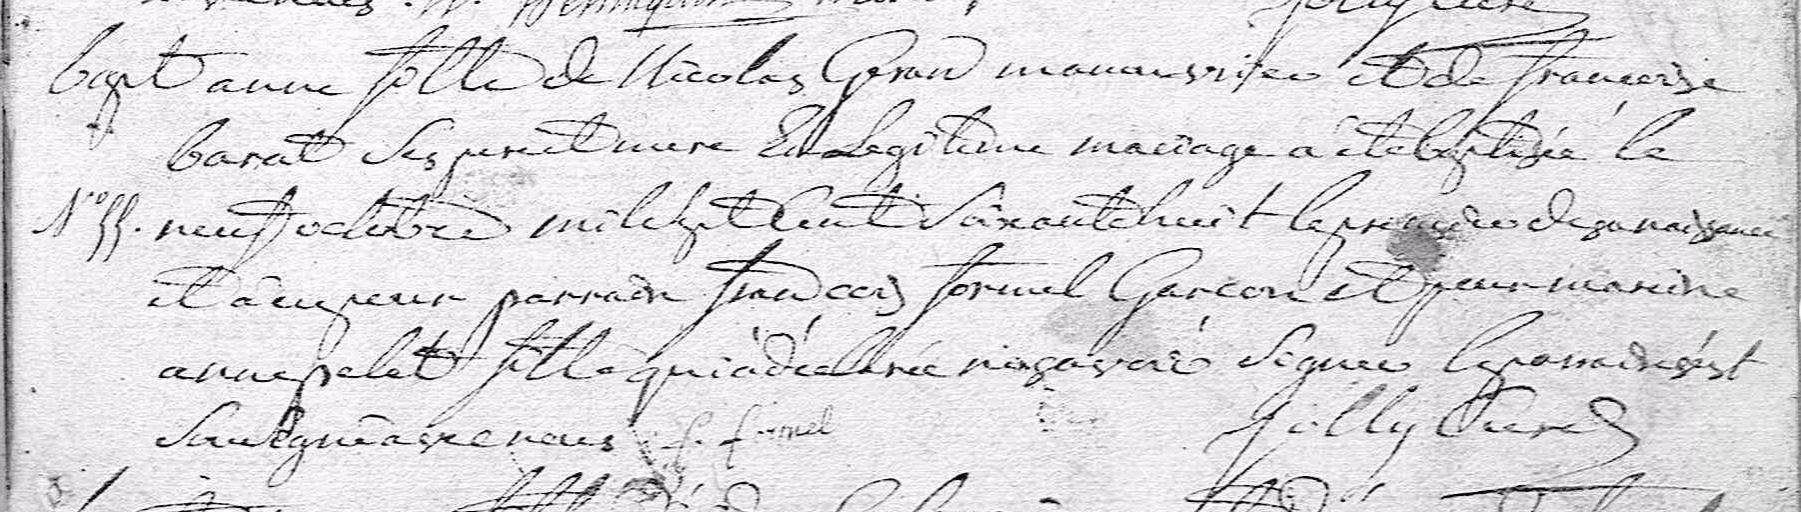 bapt anne fille de Nicolas Geran manouvrier et de françoise
barat ses pere et mere En Legitime mariage a été baptisée le
N.º 55. neuf octobre mil sept Cent Soixante huit le premier de sa naissance
et a eu pour parrain francois formel Garcon et pour mareine
anne pelet fille qui a déclaré ne sçavoir Signer le parrain s'est
Sousigné avec nous f. formel Jolly Curé